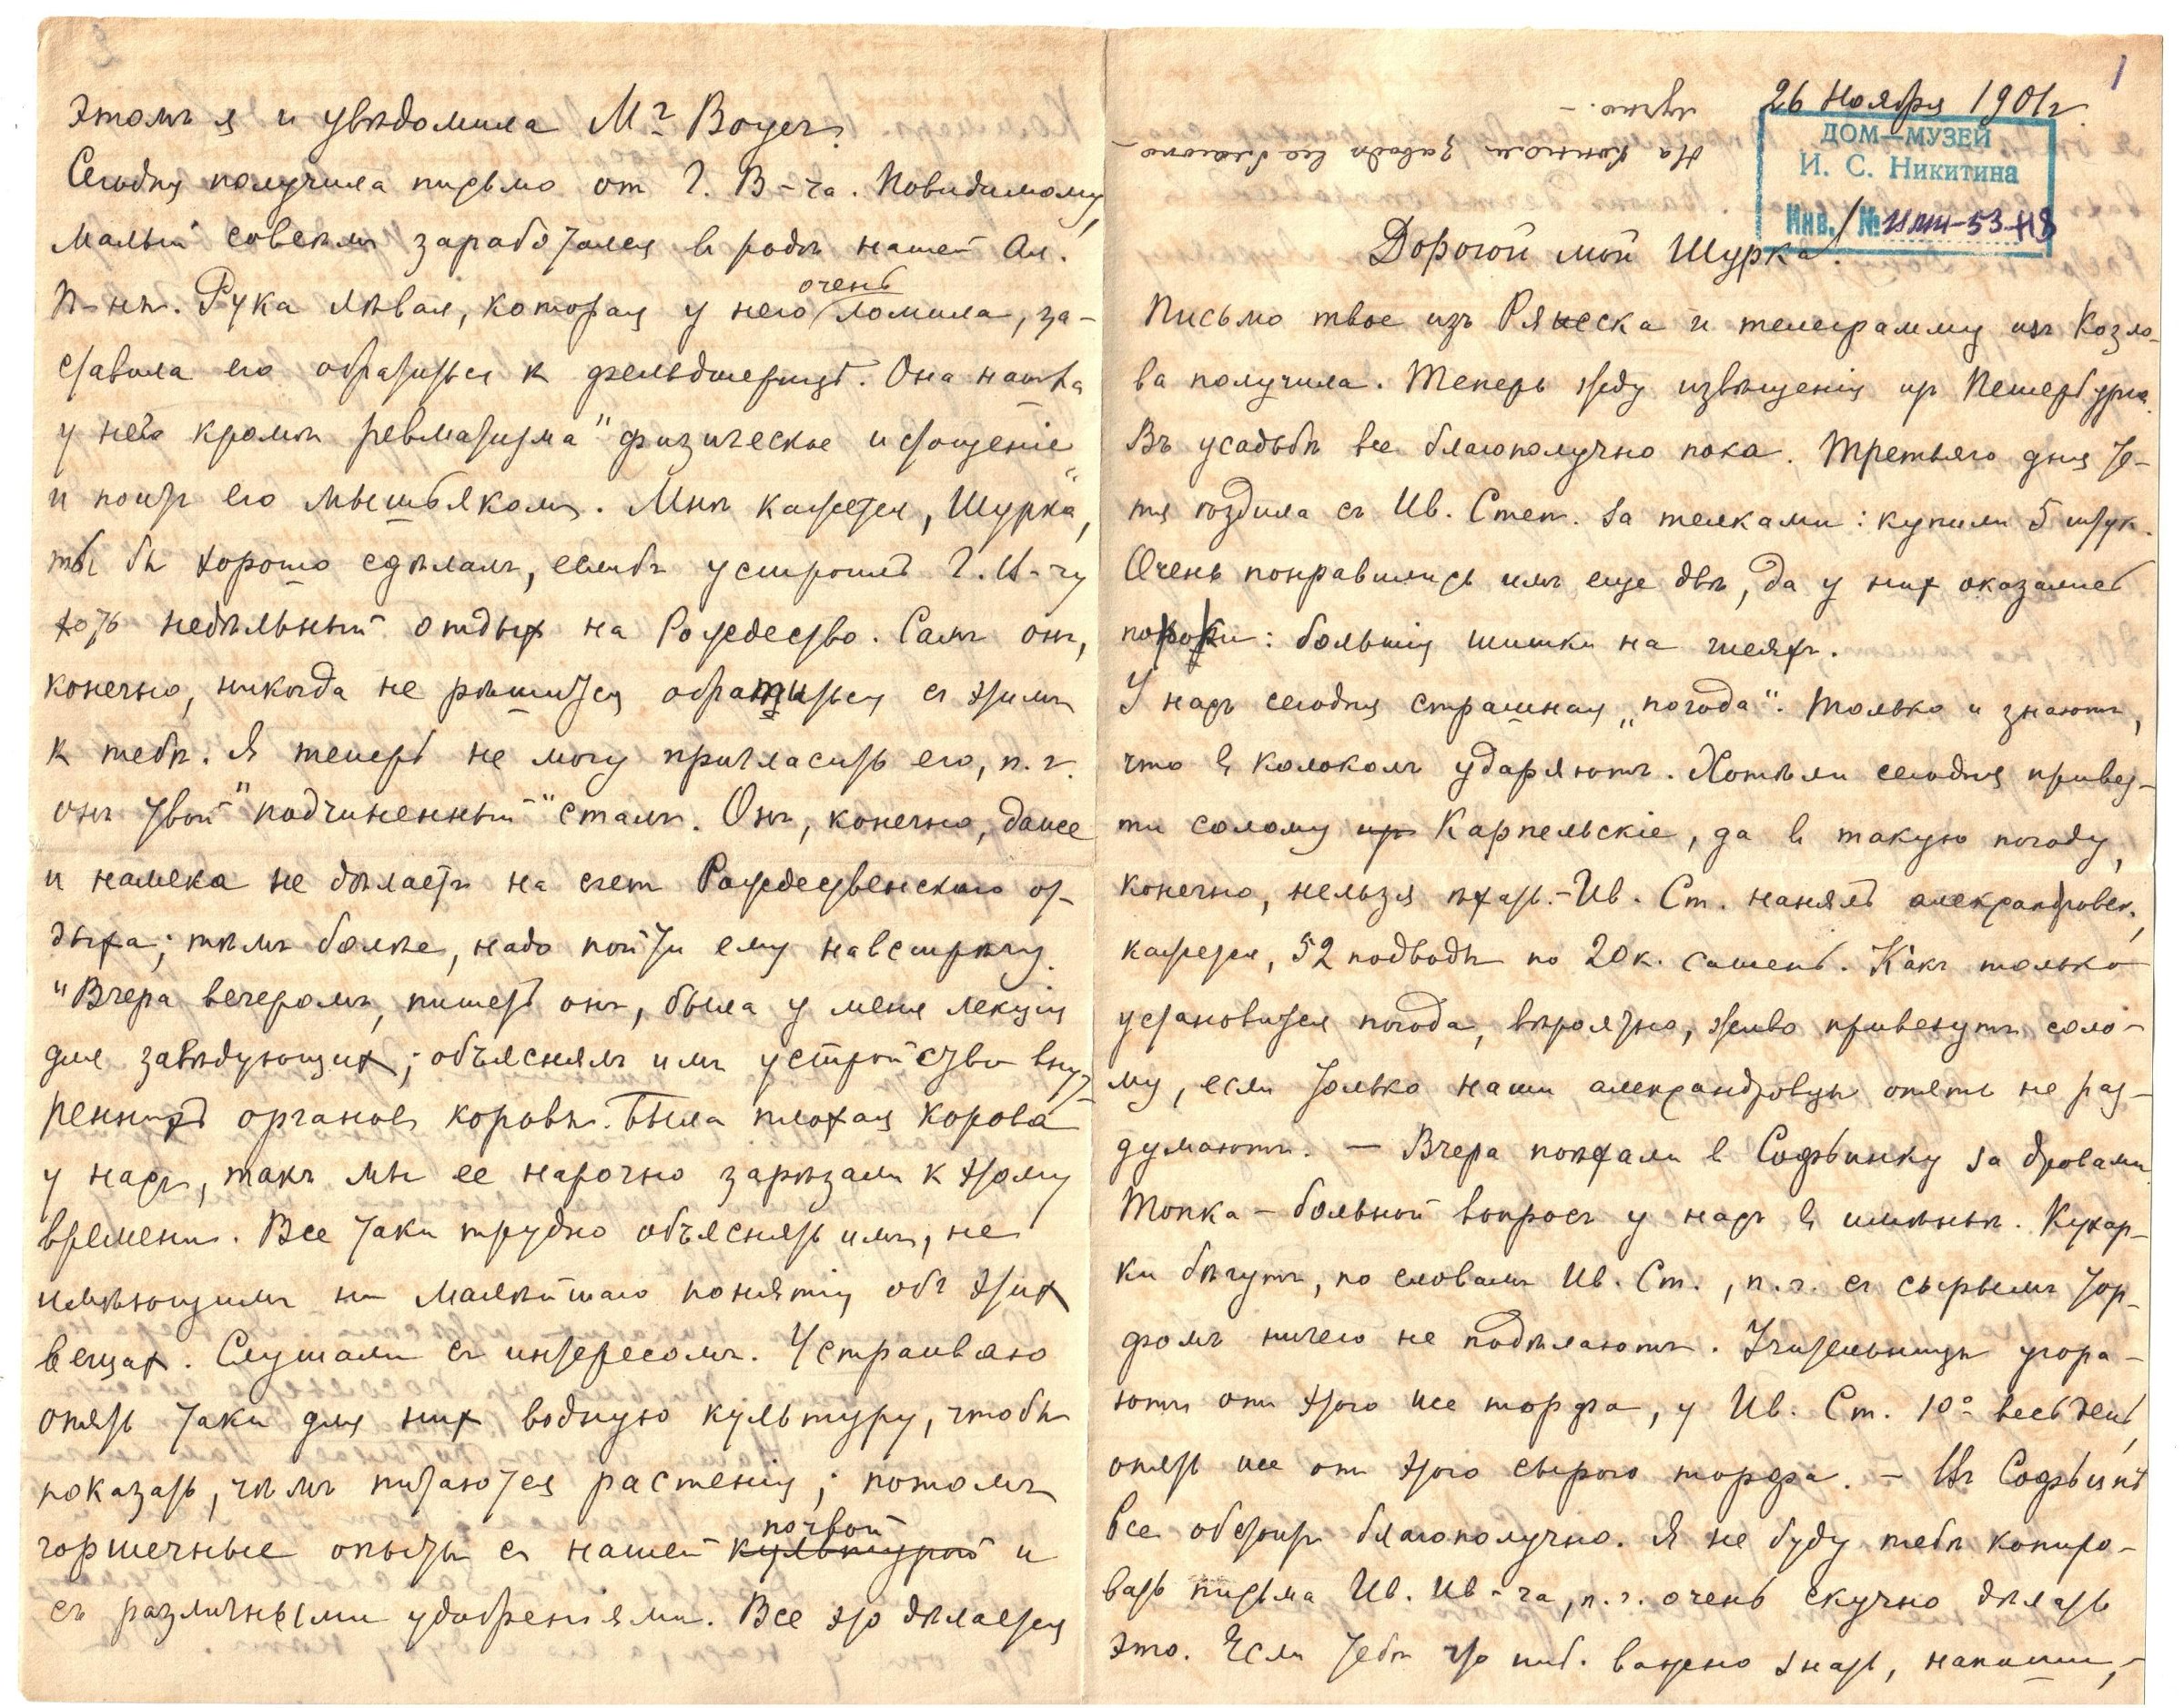 1
26 Ноября 1901 г.
На Конномъ заводѣ все благопо-
лучно. –
ДОМ—МУЗЕЙ
И. С. Никитина
Инв. №
Дорогой мой Шурка!
Письмо твое изъ Ряжска и телеграмму изъ Козло-
ва получила. Теперь жду извѣщенія изъ Петербурга.
Въ усадьбѣ все благополучно пока. Третьяго дня Те-
тя ѣздила съ Ив. Степ. за телками: купили 5 штук.
Очень понравились имъ еще двѣ, да у них оказались
пороки: большія шишки на шеяхъ.
У насъ сегодня страшная „погода". Только и знаютъ,
что в колоколъ ударяютъ. Хотѣли сегодня привез-
ти солому Карпельскіе, да в такую погоду,
конечно, нельзя ѣхать. – Ив. Ст. нанялъ александровск.,
кажется, 52 подводы по 20 к. сажень. Какъ только
установится погода, вѣроятно, живо привезутъ соло-
му, если только наши александровцы опять не раз-
думаютъ. — Вчера поѣхали в Софьинку за дровами.
Топка – больной вопросъ у насъ в имѣньи. Кухар-
ки бѣгутъ, по словамъ Ив. Ст., п. ч. съ сырымъ тор-
фомъ ничего не подѣлаютъ. Учительницы угора-
ютъ отъ этого же торфа, у Ив. Ст. 10° весь день,
опять же отъ этого сырого торфа. – Въ Софьинкѣ
все обстоитъ благополучно. Я не буду тебѣ копиро-
вать письма Ив. Ив-ча, п. ч. очень скучно дѣлать
это. Если тебѣ что ниб. важно знать, напиши, –
этомъ я и увѣдомила Mr Boyer.
Сегодня получила письмо от Г. В-ча. Повидимому,
малый совсѣмъ заработался в родѣ нашей Ал.
П-ны. Рука лѣвая, которая у него очень ломила, за-
ставила его обратиться к фельдшерицѣ. Она нашла
у него кромѣ ревматизма "физическое истощеніе"
и поитъ его мышьякомъ. Мнѣ кажется, Шурка,
ты бы хорошо сдѣлалъ, еслибъ устроилъ Г. В-чу
хоть недѣльный отдых на Рождество. Самъ онъ,
конечно, никогда не рѣшится обратиться съ этимъ
к тебѣ. Я теперь не могу пригласить его, п. ч.
онъ твой "подчиненный" сталъ. Онъ, конечно, даже
и намека не дѣлаетъ на счет Рождественскаго от-
дыха; тѣмъ болѣе, надо пойти ему навстрѣчу.
"Вчера вечеромъ, пишетъ онъ, была у меня лекція
для завѣдующих; объяснялъ имъ устройство внут-
ренних органовъ коровы. Была плохая корова
у насъ, такъ мы ее нарочно зарѣзали к этому
времени. Все таки трудно объяснять имъ, не
имѣющимъ ни малѣйшаго понятія объ этих
вещах. Слушали съ интересомъ. Устраиваю
опять таки для них водную культуру, чтобы
показать, чѣмъ питаются растенія; потомъ
горшечные опыты съ нашей культурой почвой и
съ различными удобреніями. Все это дѣлается